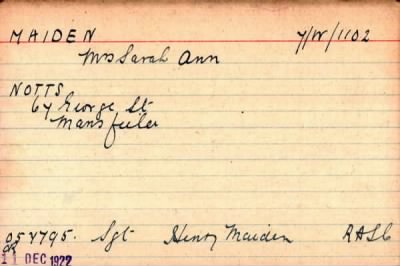 MAIDEN 7/W/1102
Mrs Sarah Ann
NOTTS
64 George St
Mansfield
054795. Sgt Henry Maiden RASC
11 DEC 1922